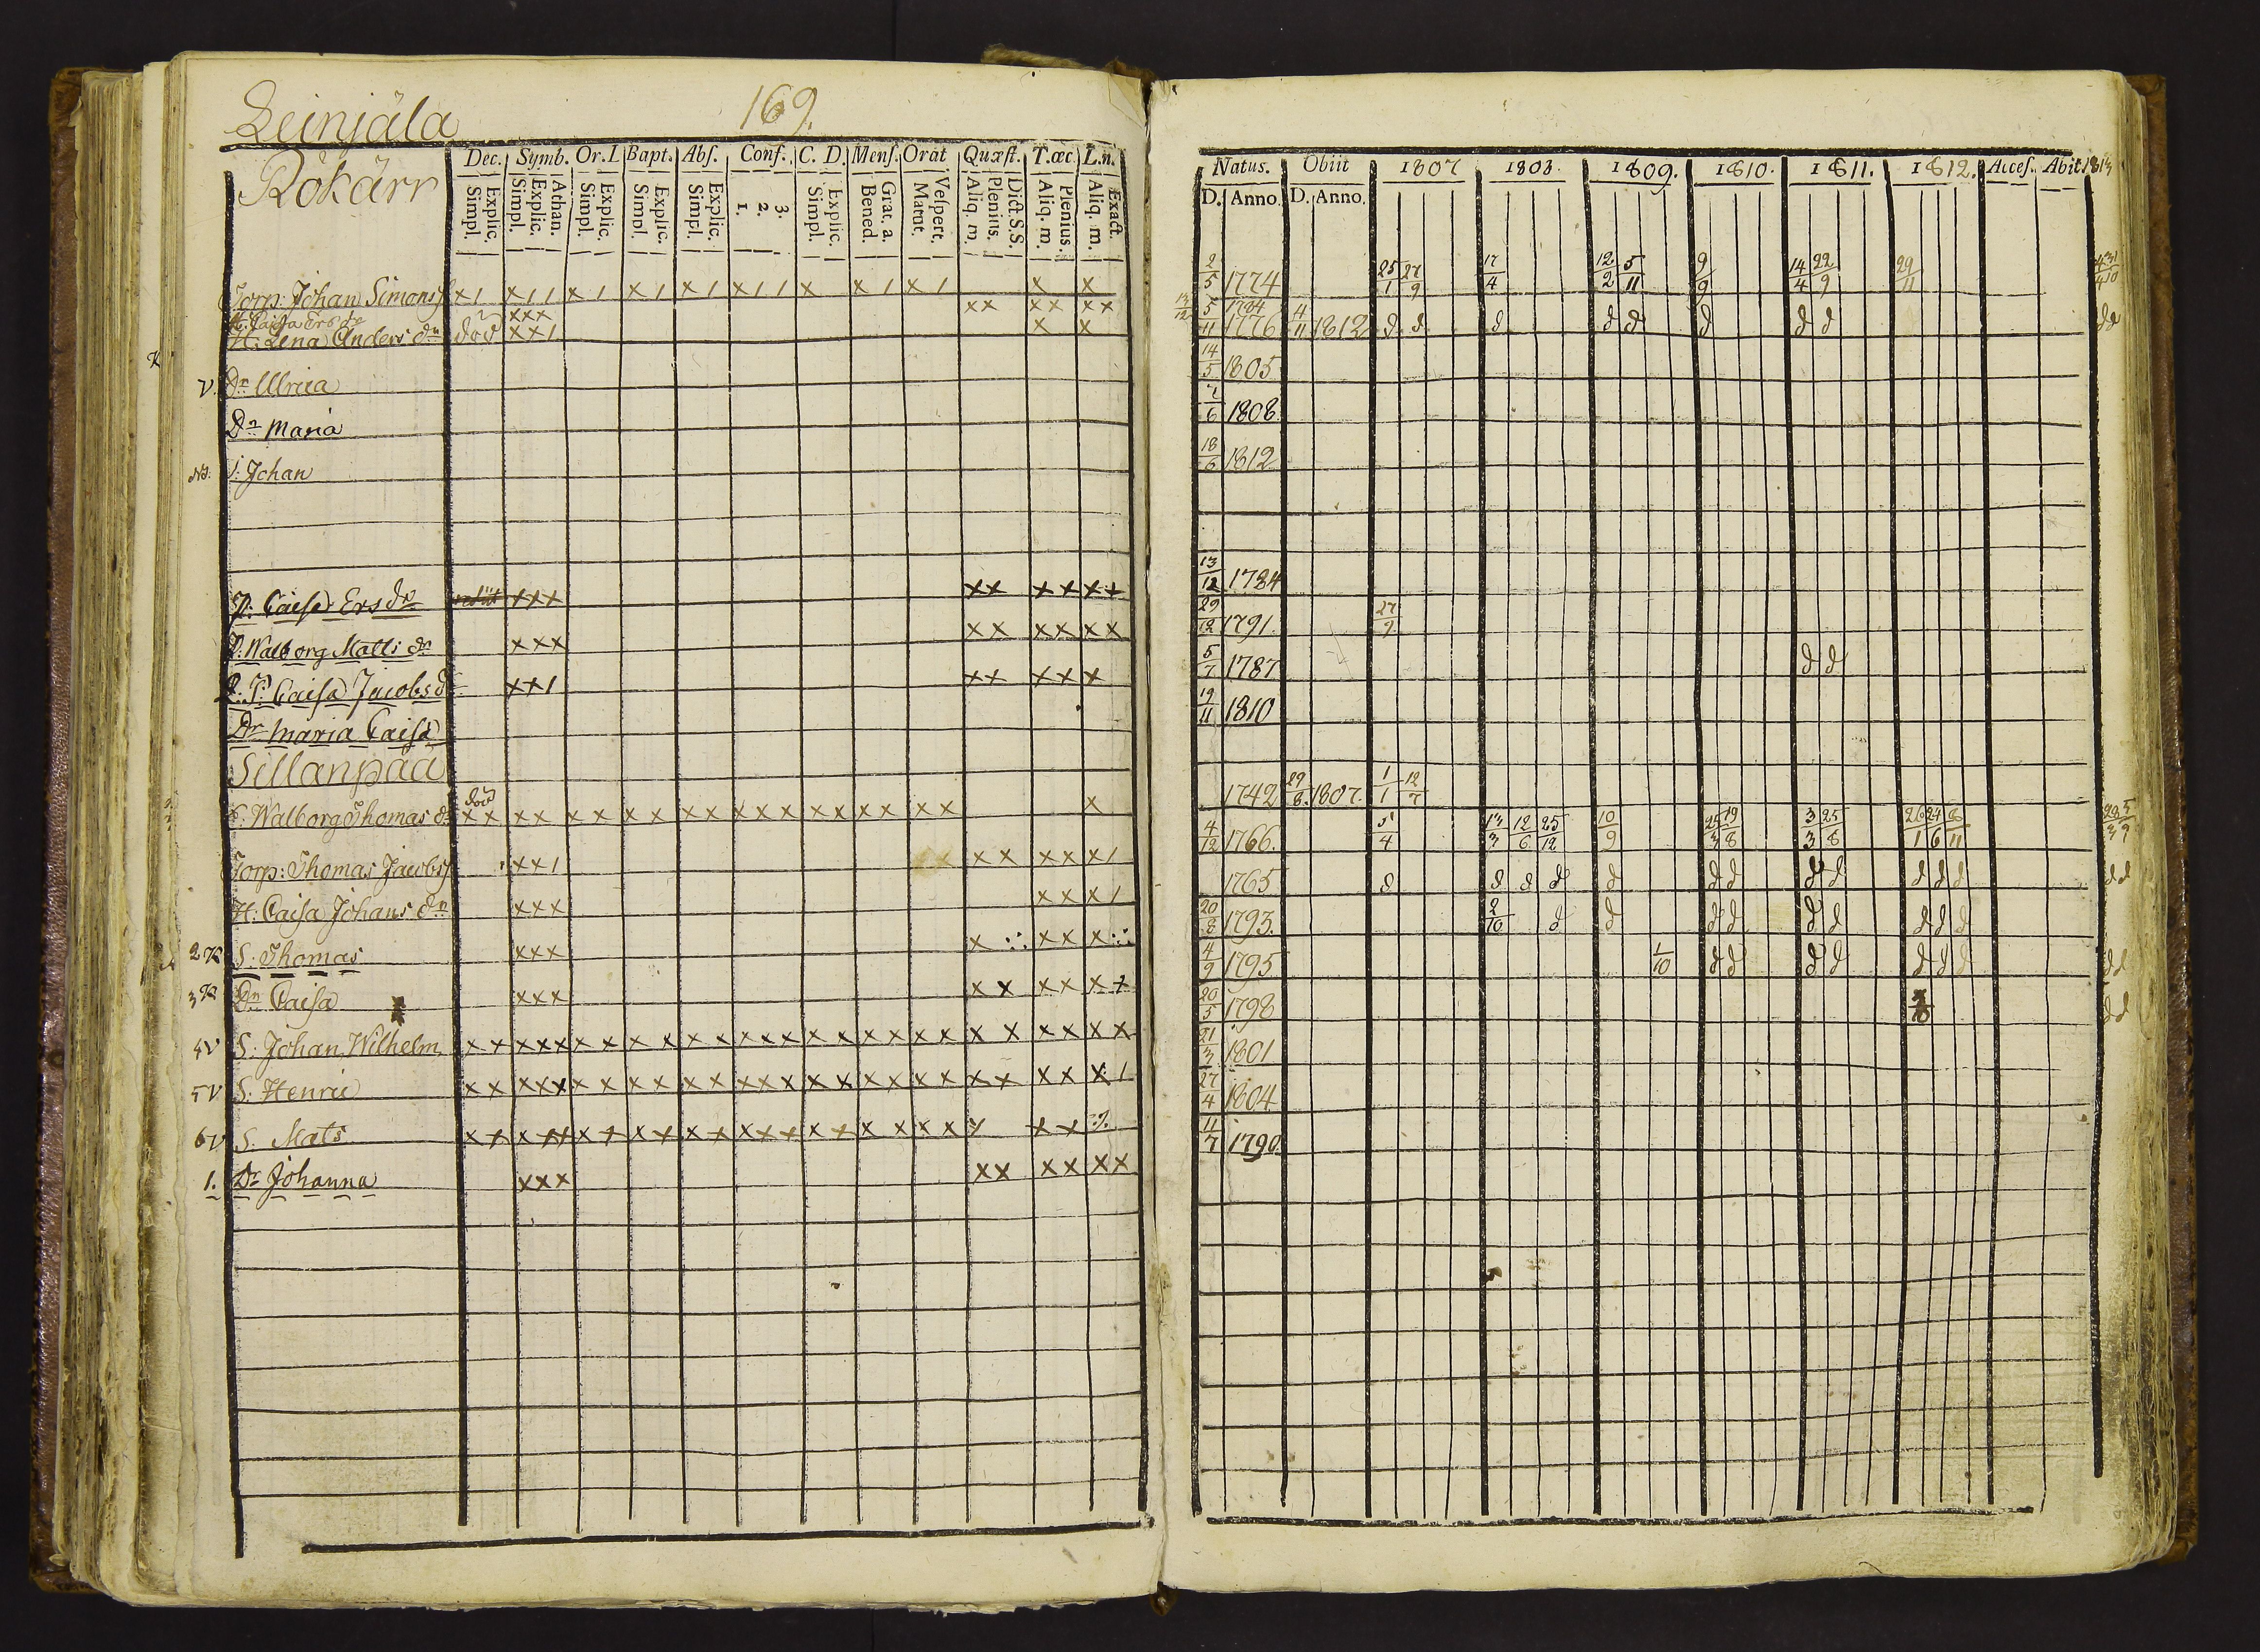 Leinjäla 169.
Rokärr
Dec. Symb. Or. L Bapt. Abſ. Conf. C. D. Menſ. Orat Quæſt. T. œc. L. n.
Simpl. Explic. Simpl. Explic. Athan. Simpl. Explic. Simpl. Explic. Simpl. Explic. 1. 2. 3. Simpl. Explic. Bened. Grat. a. Matut. Veſpert. Aliq. m. Plenius. Dict. S.S. Aliq. m. Plenius. Aliq. m. Exact.
Torp: Johan Simonsſ x/ x// x/ x/ x/ x// x x/ x/ x x
H. Caisa Ersdr xxx xx xx xx
H: Lena Anders dn död xx/ x x
V. Dr Ulrica
Dr Maria
S: Johan
P: Caisa Ersdr xxx xx xx xx
P: Walborg Matts dr xxx xx xx xx
P: Caisa Jacobs d xx/ xx xx x
Dr Maria Caisa
Sillanpää
död
Walborg Thomas dr xx xx xx xx xx xxx xx xx xx x
Torp: Thomas Jacobsſ xx/ xx xx x/
H: Caisa Johans dn xxx xx x/
2 S: Thomas xxx x xx x
3 Dr Caisa xxx xx xx xx
4 V S: Johan Wilhelm xx xxx xx xx xx xxx xx xx xx xx xx xx
5 V S: Henric xx xxx xx xx xx xxx xx xx xx xx xx x/
6 V S. Mats xx xxx xx xx xx xxx xx xx xx x xx
1. Dr Johanna xxx xx xx xx
Natus. Obiit 1807 1808. 1809. 1810. 1811. 1812. Acceſ. Abit 1813
D. Anno. D. Anno.
2/5 1774 25/1 27/9 17/4 12/2 5/11 9/9 14/4 22/9 29/11
13/12 1784
5/11 1776 4/11 1812 d d d d d d d d d d
14/5 1805
6 1808
18/6 1812
13/12 1784
29/12 1791. 27/9
5/7 1787 d d
19/11 1810
1742 29/8 1807. 1/1 12/7
4/12 1766. 5/4 13/3 12/6 25/12 10/9 25/3 19/8 3/3 25/8 26/1 24/6 8/11
1765 d d d d d d d d d d d d d d
20/8 1793. 2/10 d d d d d d d d d
4/9 1795 1/10 d d d d d d d d d
20/5 1798 d d
21/3 1801
27/4 1804
11/7 1790.